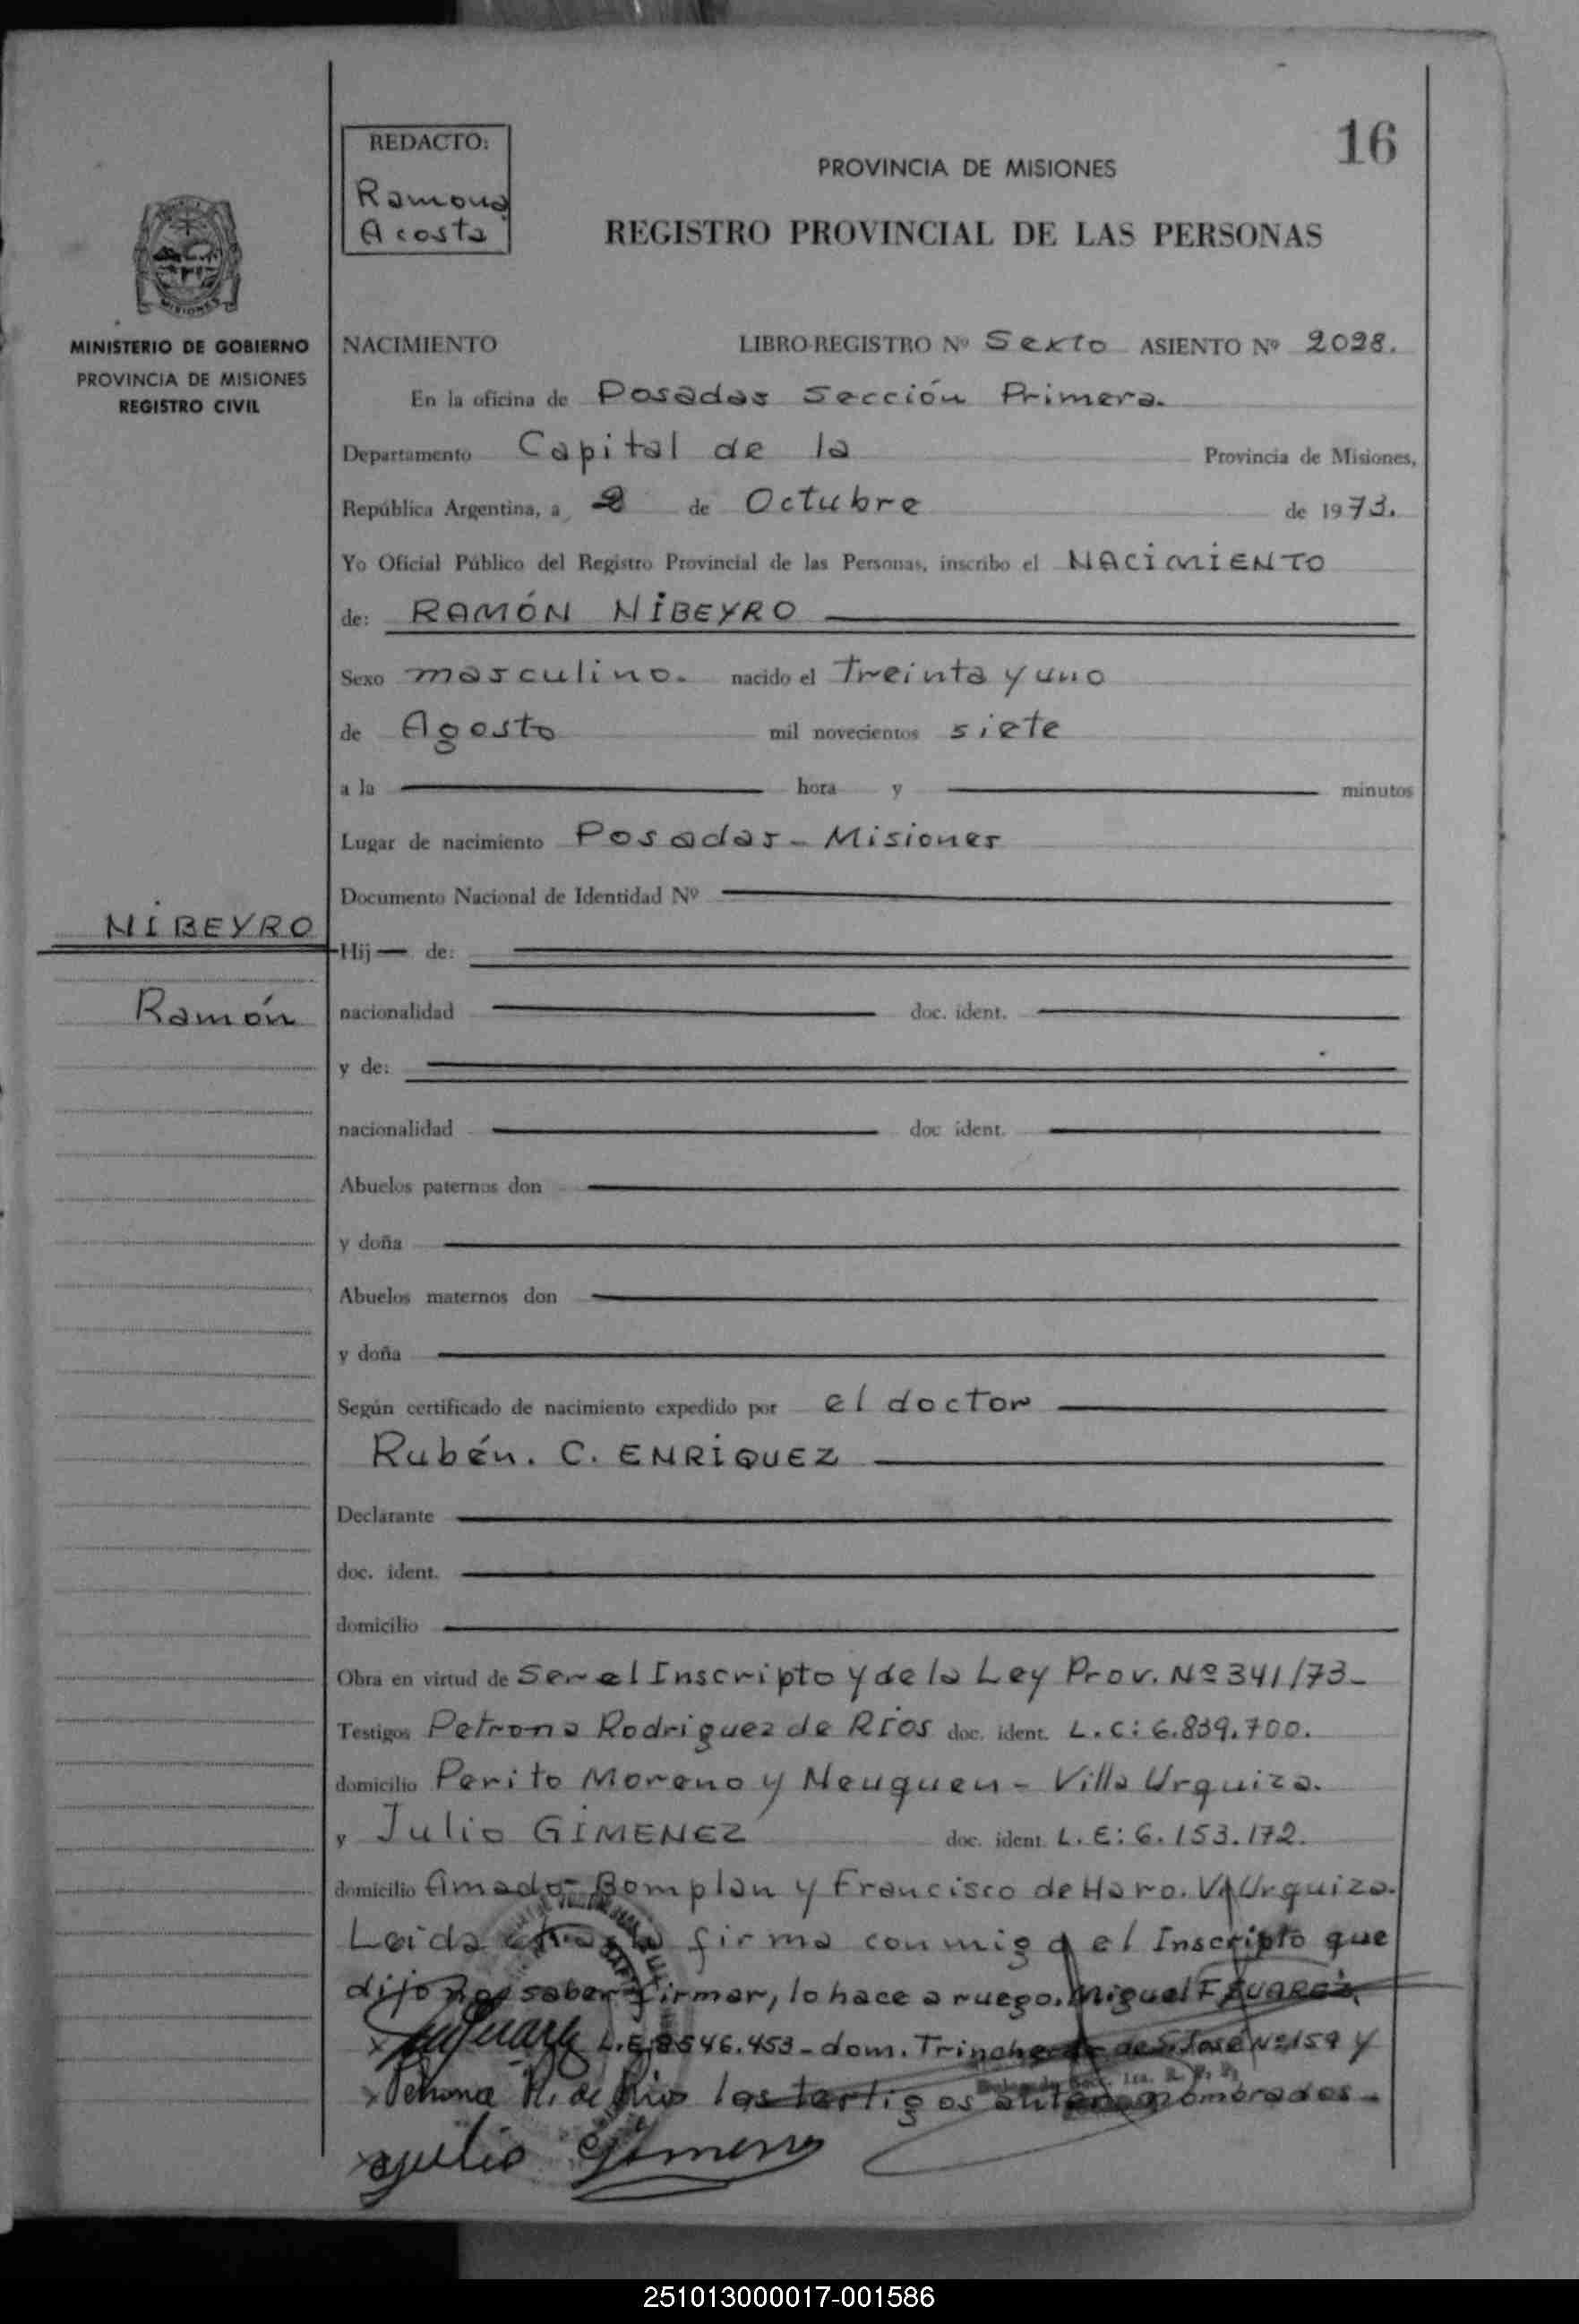 16
REDACTO:
Ramona
Acosta
PROVINCIA DE MISIONES
REGISTRO PROVINCIAL DE LAS PERSONAS
MISIONES
MINISTERIO DE GOBIERNO
PROVINCIA DE MISIONES
REGISTRO CIVIL
NACIMIENTO LIBRO-REGISTRO Nº Sexto ASIENTO Nº 2028.
En la oficina de Posadas Sección Primera.
Departamento Capital de la Provincia de Misiones,
República Argentina, a 2 de Octubre de 1973.
Yo Oficial Público del Registro Provincial de las Personas, inscribo el NACIMIENTO
de: RAMÓN NIBEYRO
Sexo masculino. nacido el Treinta y uno
de Agosto mil novecientos siete
a la hora y minutos
Lugar de nacimiento Posadas - Misiones
Documento Nacional de Identidad Nº
NIBEYRO
Hij de:
Ramón
nacionalidad doc. ident.
y de:
nacionalidad doc ident.
Abuelos paternos don
y doña
Abuelos maternos don
y doña
Según certificado de nacimiento expedido por el doctor
Rubén. C. ENRIQUEZ
Declarante
doc. ident.
domicilio
Obra en virtud de Ser el Inscripto y de la Ley Prov. Nº 341/73-
Testigos Petrona Rodriguez de Ríos doc. ident. L.C: 6.839.700.
domicilio Perito Moreno y Neuquen - Villa Urquiza.
y Julio GIMENEZ doc. ident. L.E: 6.153.172.
domicilio Amado Bomplan y Francisco de Haro. Va Urquiza.
Leida firma conmigo el Inscripto que
dijo no saber firmar, lo hace a ruego. Miguel F. ZUAREZ,
L.E. 8546.453 - dom. Trinchera de S. José Nº 159 y
Petrona R. de Rios los testigos antes nombrados -
Julio Gimenez
251013000017-001586